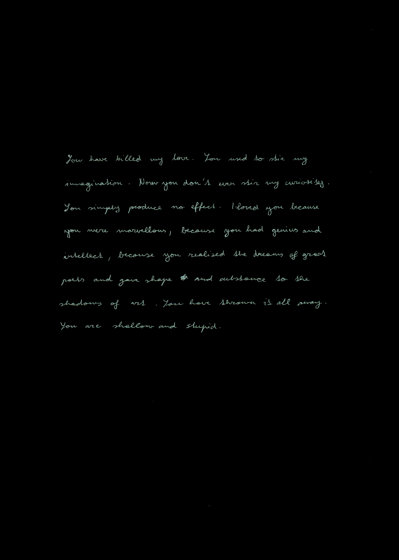 You have killed my love. You used to stir my
imagination. Now you don't even stir my curiosity.
You simply produce no effect. I loved you because
you were marvellous, because you had genius and
intellect, because you realised the dreams of great
poets and gave shape and substance to the
shadows of art. You have thrown it all away.
You are shallow and stupid.